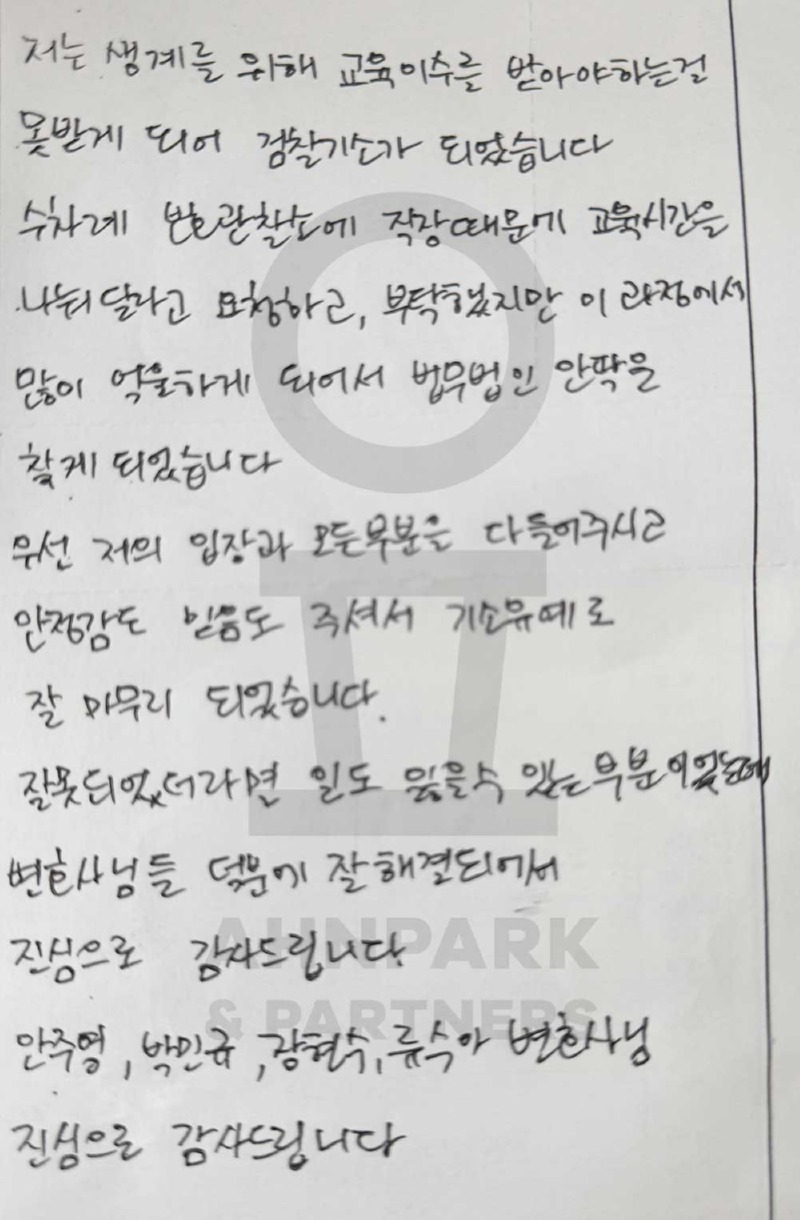 저는 생계를 위해 교육이수를 받아야하는걸
못받게 되어 검찰기소가 되었습니다
수차례 보호관찰소에 직장때문에 교육시간을
나눠달라고 요청하고, 부탁했지만 이 과정에서
많이 억울하게 되어서 법무법인 안팍을
찾게 되었습니다
우선 저의 입장과 모든부분을 다들어주시고
안정감도 믿음도 주셔서 기소유예로
잘 마무리 되었습니다.
잘못되었더라면 일도 잃을수 있는 부분이었는데
변호사님들 덕분에 잘해결되어서
진심으로 감사드립니다
AHNPARK
& PARTNERS
안주영, 박민규, 장현수, 류수아 변호사님
진심으로 감사드립니다